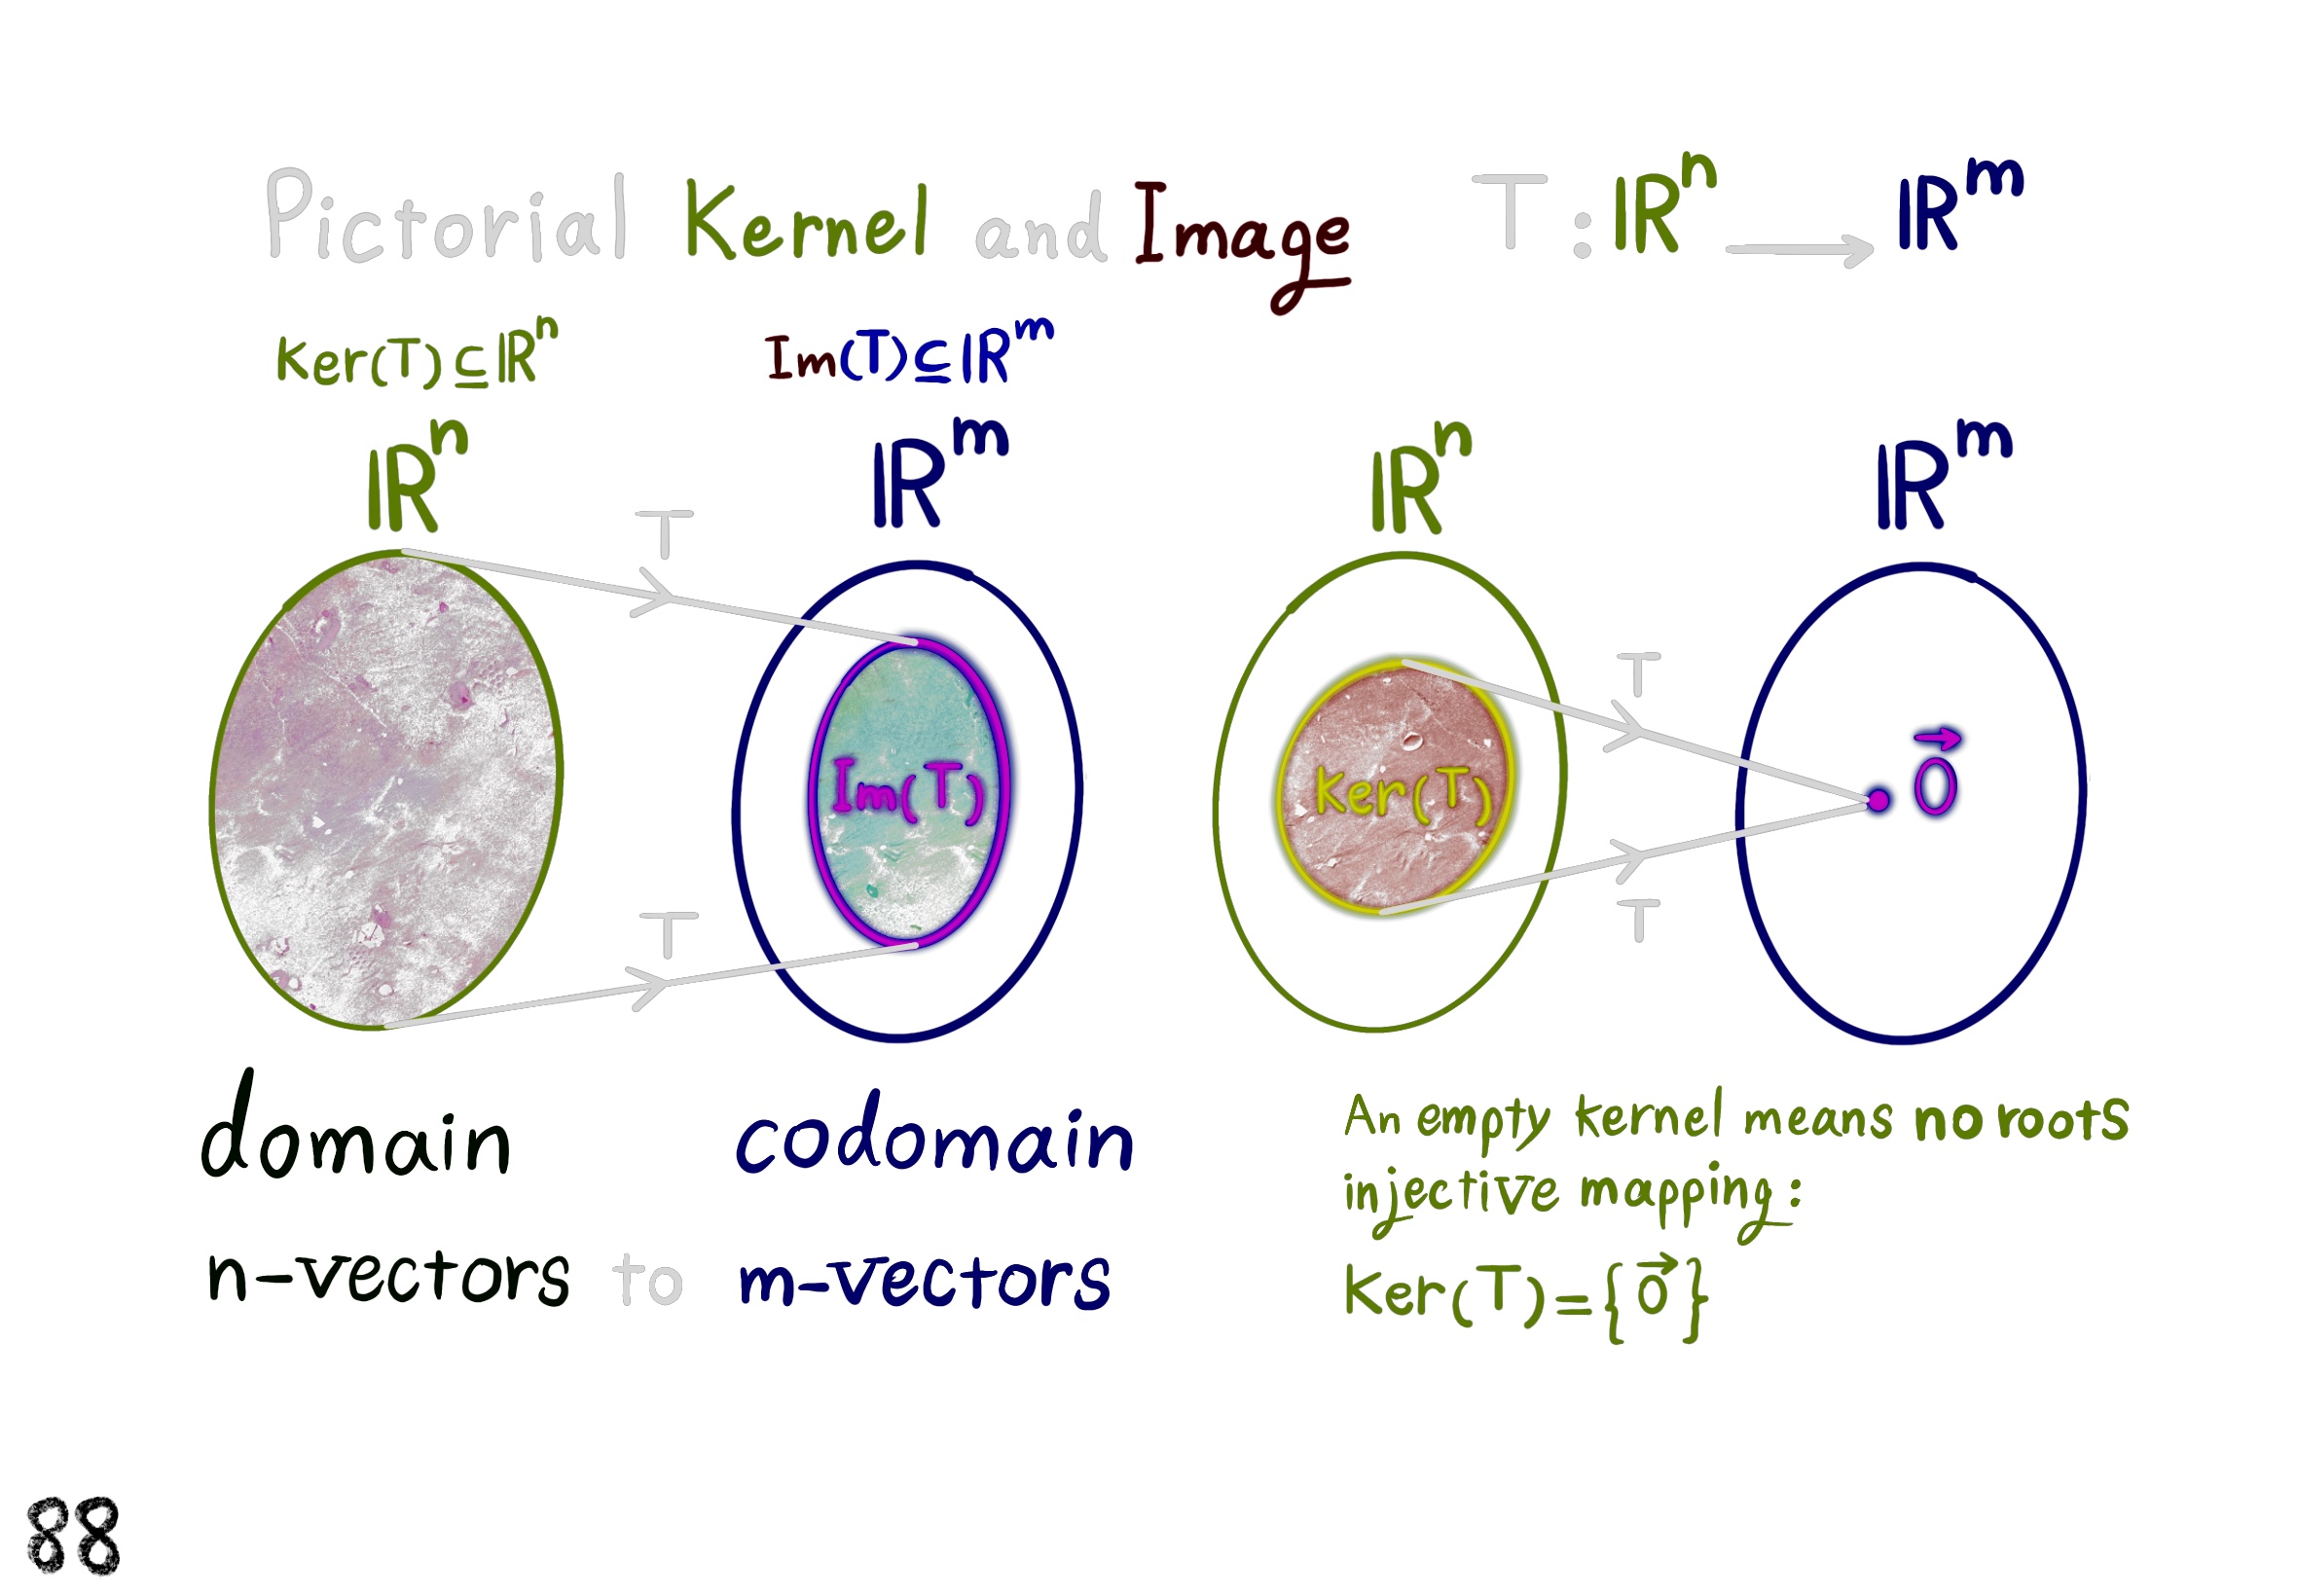 Pictorial Kernel and Image T : ℝⁿ ⟶ ℝᵐ
Ker(T) ⊆ ℝⁿ
Im(T) ⊆ ℝᵐ
ℝⁿ
T
ℝᵐ
Im(T)
T
ℝⁿ
Ker(T)
T
T
ℝᵐ
0⃗
domain
codomain
n-vectors to m-vectors
An empty kernel means no roots
injective mapping:
Ker(T)={0⃗}
88